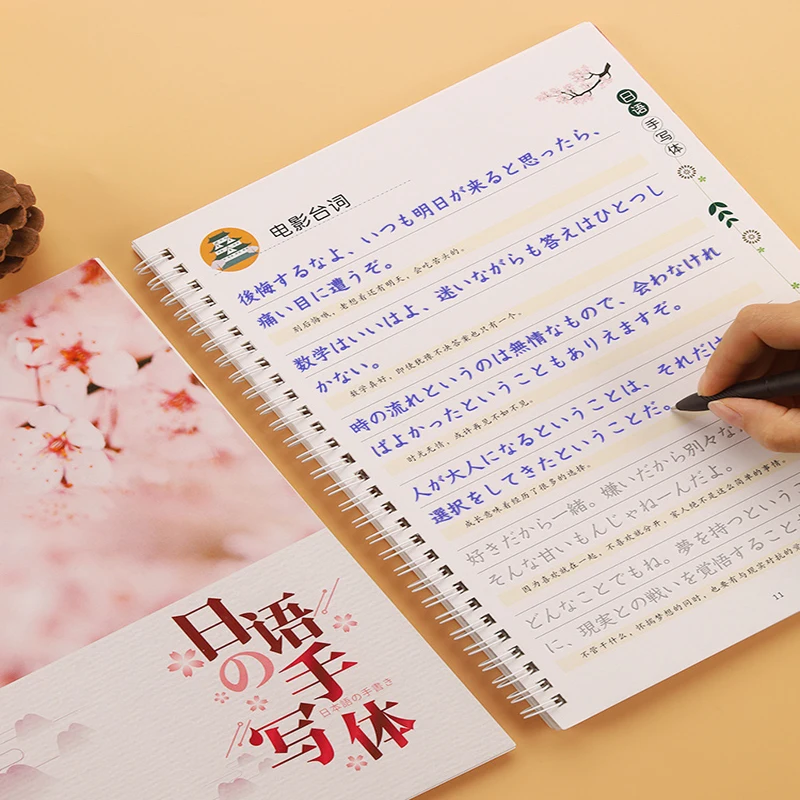 日语
手写体
电影台词
後悔するなよ、いつも明日が来ると思ったら、
痛い目に遭うぞ。
别后悔哦，老想着还有明天，会吃苦头的。
数学はいいはよ、迷いながらも答えはひとつし
かない。
数学真好，即使犹豫不决答案也只有一个。
時の流れというのは無情なもので、会わなけれ
ばよかったということもありえますぞ。
时光无情，或许再见不如不见。
人が大人になるということは、それだけ
選択をしてきたということだ。
成长意味着经历了很多的选择。
好きだから一緒。嫌いだから別々な
そんな甘いもんじゃねーんだよ。
因为喜欢就在一起，不喜欢就分开，家人绝不是这么简单的事情。
どんなことでもね。夢を持つという
に、現実との戦いを覚悟すること
不管干什么，怀揣梦想的同时，也要有与现实对抗的
11
日语
の手
写体
日本語の手書き